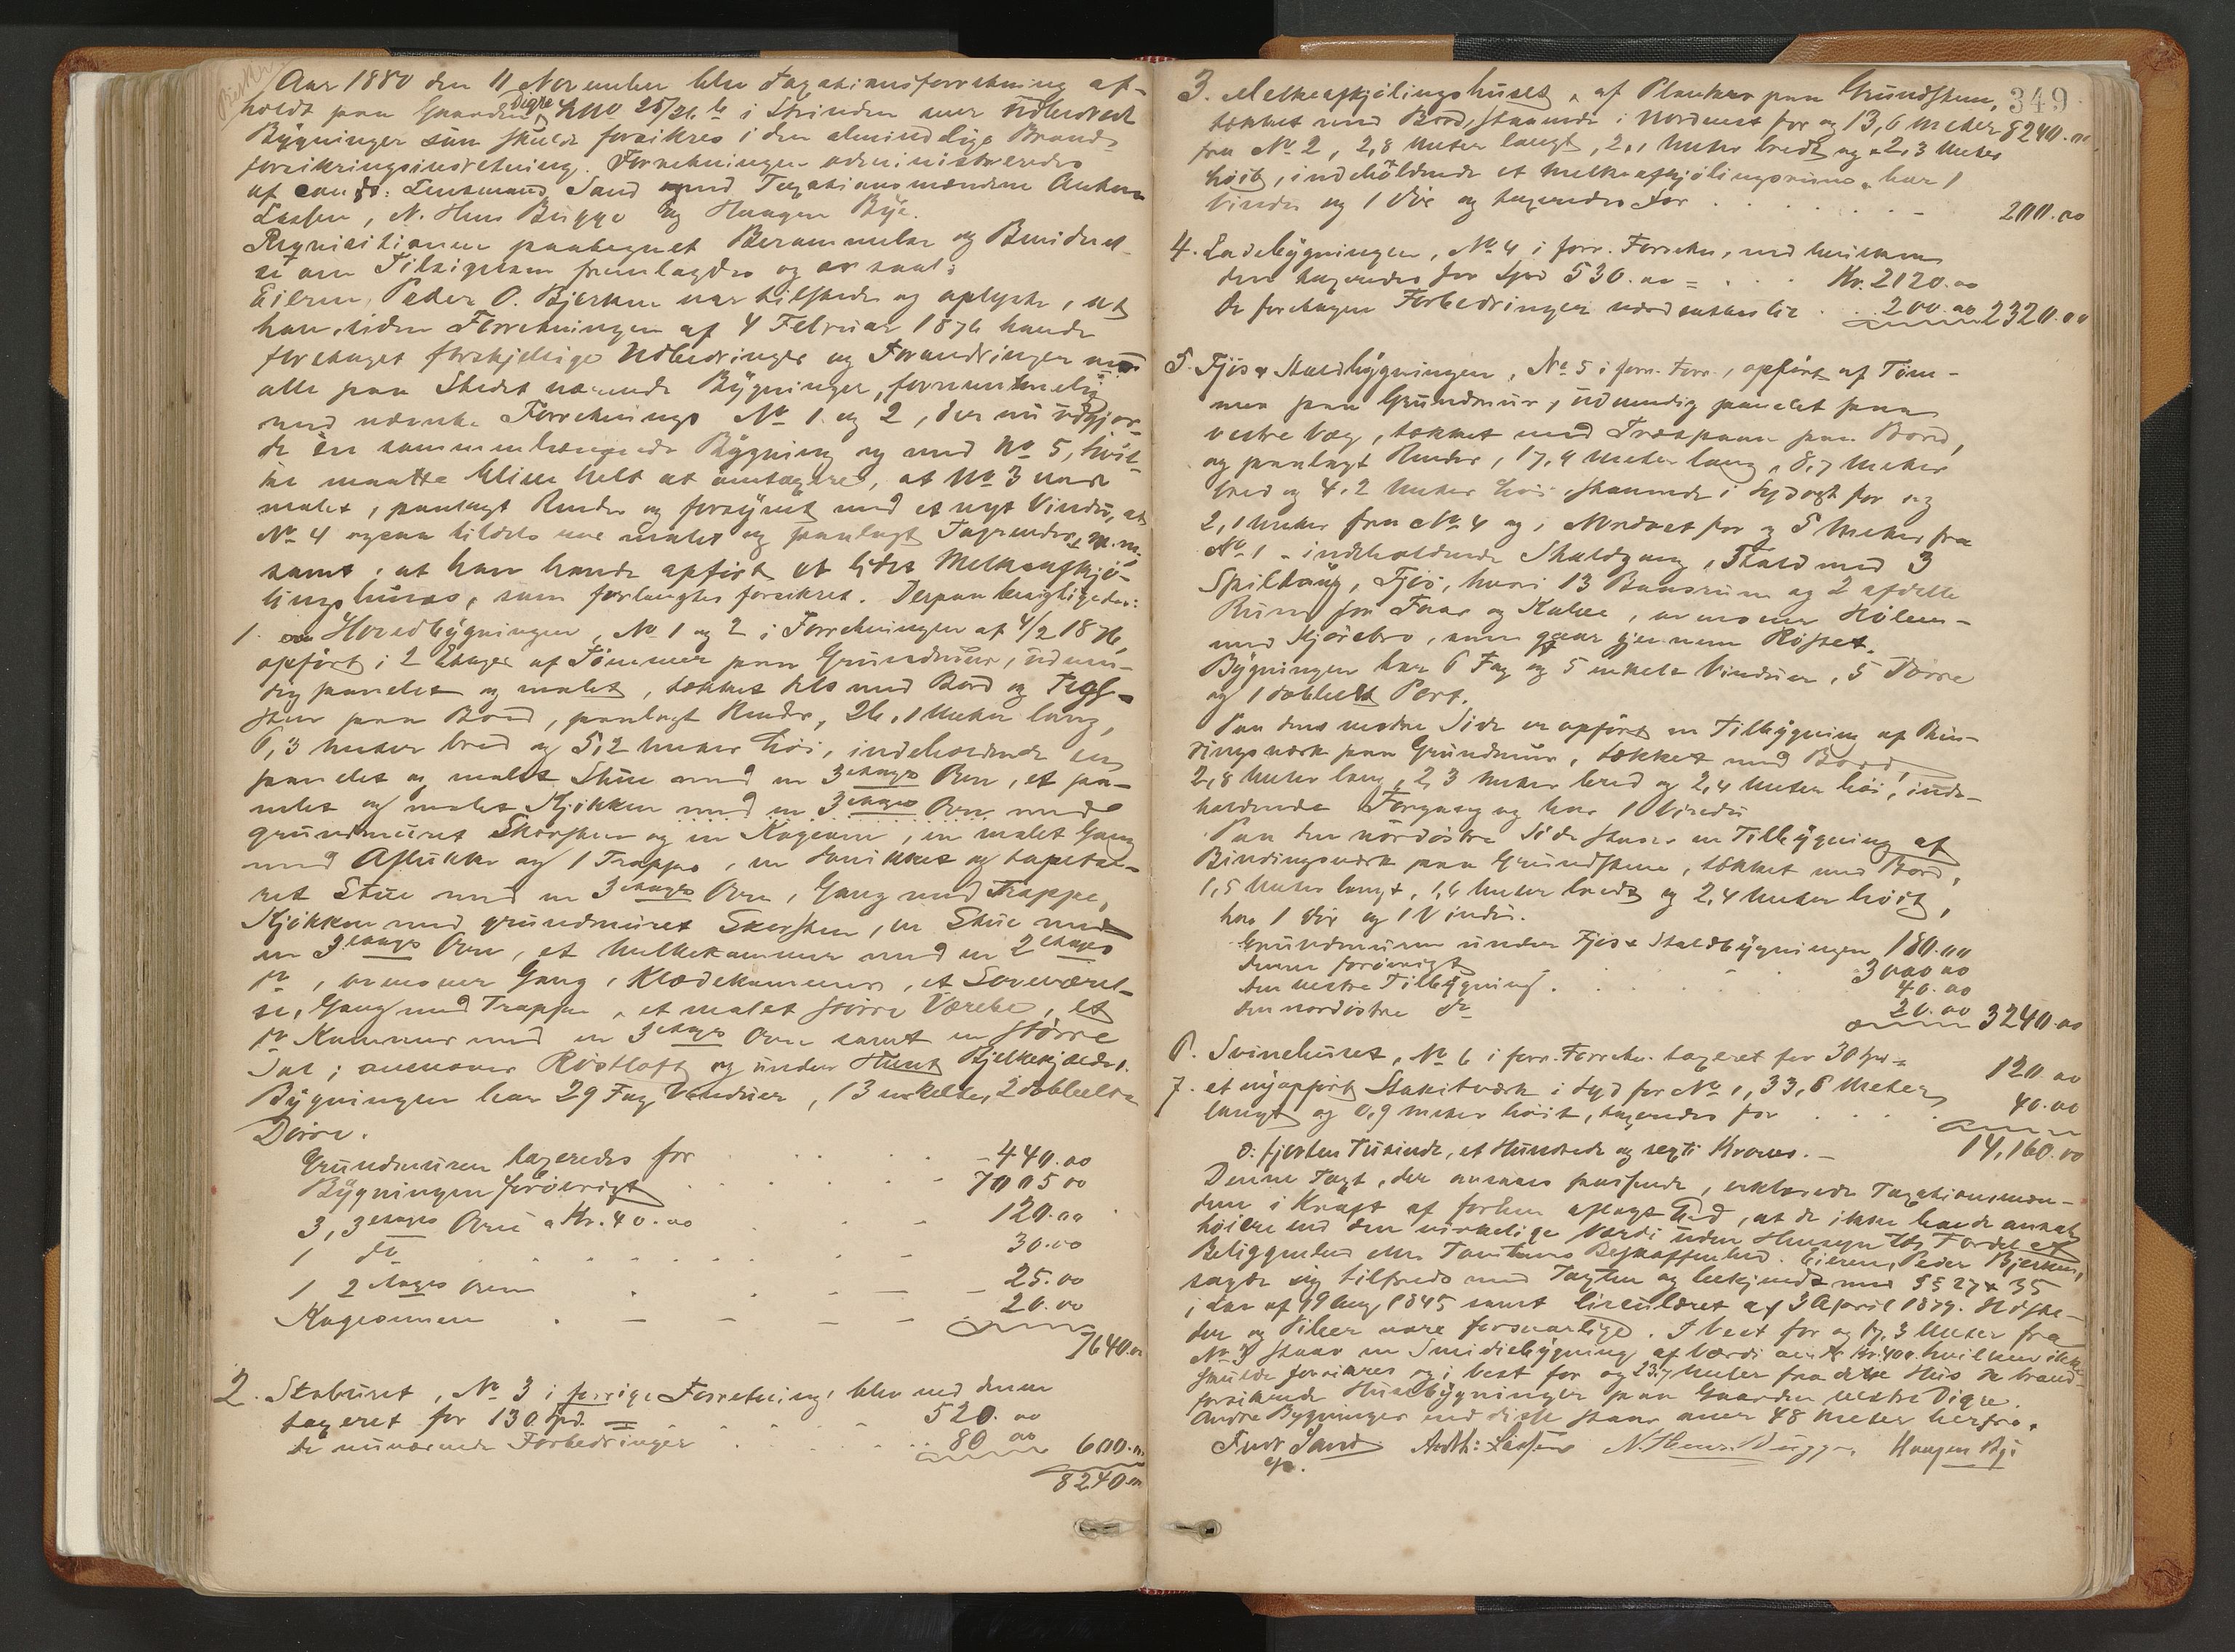 Aar 1880 den 11 November blev Taxationsforretning af-
holdt paa Gaarden Digre LNo 25/26 b i Strinden over Udhusets
Bygninger som skulde forsikres i den almindelige Brand-
forsikringsindretning. Forretningen administreredes
af const: Lensmand Sand med Taxationsmændene Anthon
Lassen, N. Hens Bugge og Haagen Bye.
Reqvisitionen paategnet Berammelse og Bevidnel-
se om Tilsigelsen fremlagdes og er saal:
Eieren, Peder O. Bjerken var tilstede og oplyste, at
han siden Forretningen af 4 Februar 1876 havde
foretaget forskjellige Udbedringer og Forandringer ved
alle paa Stedet værende Bygninger, fornemmelig
med nævnte Forretnings No 1 og 2, der nu udgjor-
de en sammenhængende Bygning og med No 5, hvil-
ke maatte blive helt at omtaxere, at No 3 var
malet, paalagt Render og forsynet med et nyt Vindu, at
No 4 ogsaa tildels var malet og paalagt Tagrender m. m.
samt, at han havde opført et lidet Melkeafkjø-
lingshuus, som forlangtes forsikret. Derpaa besigtigedes:
1. Hovedbygningen, No 1 og 2 i Forretningen af 4/2 1876,
opført i 2 Etager af Tømmer paa Grundmuur, udven-
dig panelet og malet, tækket dels med Bord og Tegl-
steen paa Bord, paalagt Render, 26,1 Meter lang,
6,3 Meter bred og 5,2 Meter høi, indeholdende en
panelet og malet Stue med en 3 etages Ovn, et pa-
nelet og malet Kjøkken med en 3 etages Ovn med
grundmuret Skorsten og en Kogeovn, en malet Gang
med Aflukke og 1 Trappe, en panelet og tapetse-
ret Stue med en 3 etages Ovn, Gang med Trappe,
Kjøkken med grundmuret Skorsten, en Stue med
en 3 etages Ovn, et Melkekammer med en 2 etages
do, ovenover Gang, Klædekammer, et Soveværel-
se, Gang med Trappe, et malet større Værelse, et
do Kammer med en 3 etages Ovn samt en større
Sal; ovenover Røstloft og under Huset Bjelkekjelder.
Bygningen har 29 Fag Vinduer, 13 enkelte, 2 dobbelte
Dørre.
Grundmuren taxeredes for . . . . - 440.00
Bygningen forøvrigt . . . . - 7005 00
3, 3 etages Ovne a Kr. 40.00 . . - 120.00
1 do . . . . . - 30.00
1 2 etages Ovn . . . - - 25.00
Kogeovnen . - - - - 20.00
7640.00
2. Staburet, No 3 i forrige Forretning, blev ved denne
taxeret for 130 Spd. = . . . . 520.00
de nuværende Forbedringer . . . . 80 00 600.00
8240.00
349
3. Melkeafkjølingshuset, af Planker paa Grundsteen,
8240.00
tækket med Bord, staaende i Nordvest for og 13,6 Meter
fra No 2, 2,8 Meter langt, 2,1 Meter bredt og 2,3 Meter
høit, indeholdende et Melkeafkjølingsrum, har 1
Vindu og 1 Dør og taxeredes for . . . . . . 200.00
4. Ladebygningen, No 4 i forr. Forretn., ved hvilken
den taxeredes for Spd 530.00 = . . . Kr. 2120.00
de foretagne Forbedringer . . 200.00 2320.00
5. Fjøs & Staldbygningen, No 5 i forr. Forr., opført af Tøm-
mer paa Grundmuur, udvendig panelet paa
vestre Væg, tækket med Træspaan paa Bord,
og paalagt Render, 17,4 Meter lang, 8,7 Meter
bred og 4,2 Meter høi, staaende i Sydvest for og
2,1 Meter fra No 4 og i Nordvest for og 5 Meter fra
No 1 - indeholdende Staldgang, Stald med 3
Spiltaug, Fjøs, hvori 13 Baasrum og 2 afdelte
Rum for Faar og Kalve, ovenover Hølem-
med Kjørebro, som gaar gjennem Røstet.
Bygningen har 6 Fag og 5 enkelte Vinduer, 5 Dørre
og 1 dobbelt Port.
Paa dens vestre Side er opført en Tilbygning af Bin-
dingsværk paa Grundmuur, tækket med Bord,
2,8 Meter lang, 2,3 Meter bred og 2,4 Meter høi, inde-
holdende Forgang og har 1 Vindu
Paa den nordøstre Side staaer en Tilbygning af
Bindingsværk paa Grundsteene, tækket med Bord,
1,5 Meter langt, 1,6 Meter bredt og 2,4 Meter høit,
har 1 Dør og 1 Vindu.
Grundmuren under Fjøs & Staldbygningen 180.00
denne forøvrigt 3000 00
den vestre Tilbygning . . . . . 40.00
den nordøstre do 20.00 3240.00
6. Svinehuset, No 6 i forr. Forretn. taxeret for 30 Spd = 120 00
7. et nyopført Stakitværk i Syd for No 1, 33,8 Meter
langt og 0,9 Meter høit, taxeredes for . . . . 40.00
14,160.00
o: fjorten Tusinde, et Hundrede og sexti Kroner. -
Denne Taxt, der ansaaes passende, erklærede Taxationsmæn-
dene i Kraft af forhen aflagt Eed, at de ikke havde ansat
høiere end den virkelige Værdi uden Hensyn til Fordel af
Beliggenhed eller Tomtens Beskaffenhed. Eieren, Peder Bjerken,
sagde sig tilfreds med Taxten og bekjendt med §§ 27 & 35
i Lov af 19 Aug 1845 samt Circulæret af 3 April 1879. Ildste-
der og Piber vare forsvarlige. I Vest for og 17,3 Meter fra
No 3 staar en Smidiebygning af Værdi circa Kr. 400. hvilken ikke
skulde forsikres og i Vest for og 23,7 Meter fra dette Huus de brand-
forsikrede Huusbygninger paa Gaarden vestre Digre.
Andre Bygninger end disse staar over 48 Meter herfra.
Fredr Sand Anth: Lassen N. Hens. Bugge. Haagen Bye